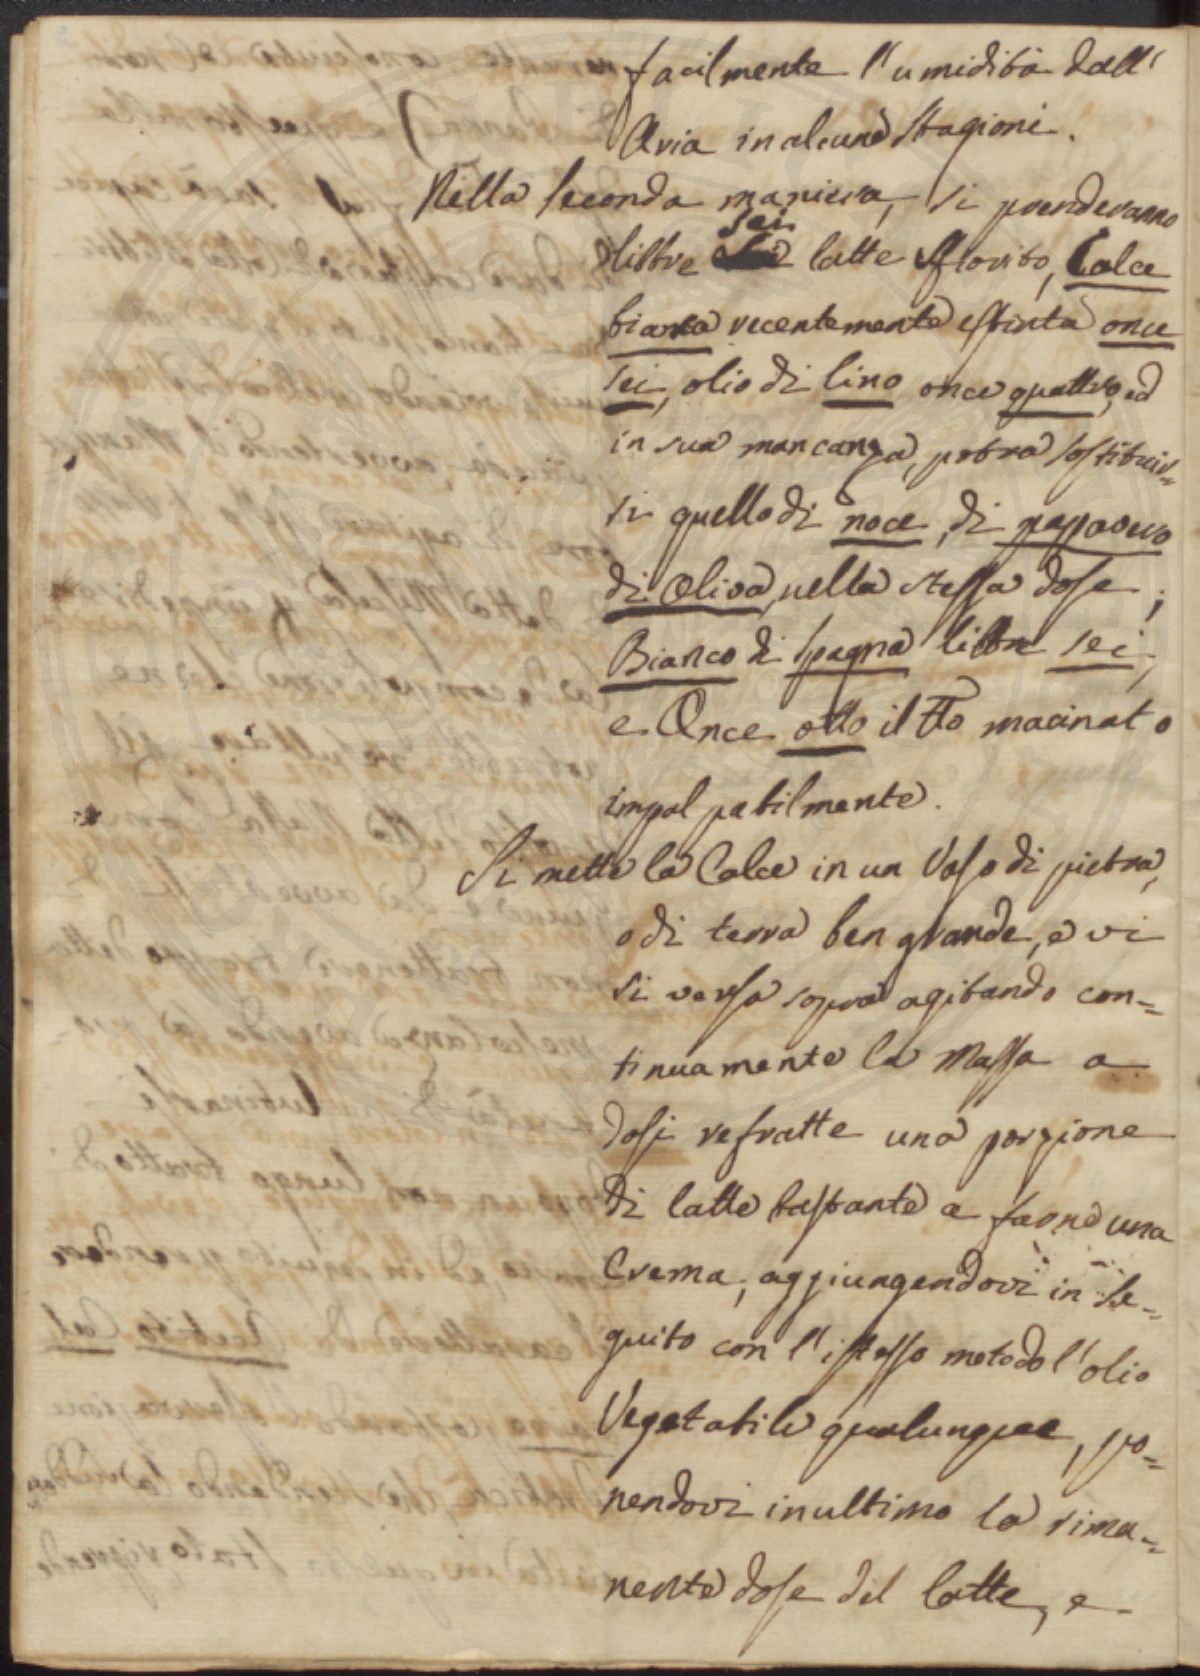 facilmente l'umidità dall'
Aria in alcune Stagioni.
Nella seconda maniera, si prenderanno
libbre sei latte sfiorito, Calce
bianca recentemente estinta once
sei, olio di lino once quattro, ed
in sua mancanza, potrà sostituir-
si quello di noce, di papavero
di Oliva, nella stessa dose;
Bianco di Spagna libbre sei,
e Once otto il tto macinato
impalpabilmente.
Si mette la Calce in un Vaso di pietra,
o di terra ben grande, e vi
si versa sopra agitando con-
tinuamente la Massa a
dosi refratte una porzione
di latte bastante a farne una
Crema, aggiungendovi in se-
guito con l'istesso metodo l'olio
Vegetabile qualunque, po-
nendovi in ultimo la rima-
nente dose del latte, e